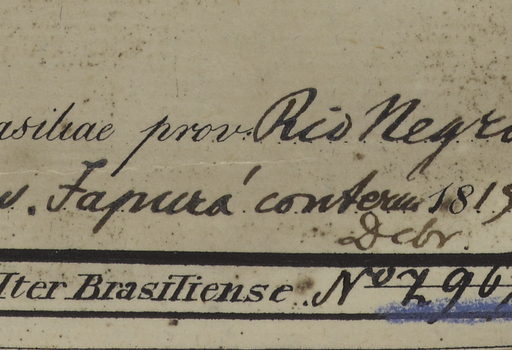 asiliae prov. Rio Negro
v. Japurá conterm 1819
Debr.
Iter Brasiliense. No 296